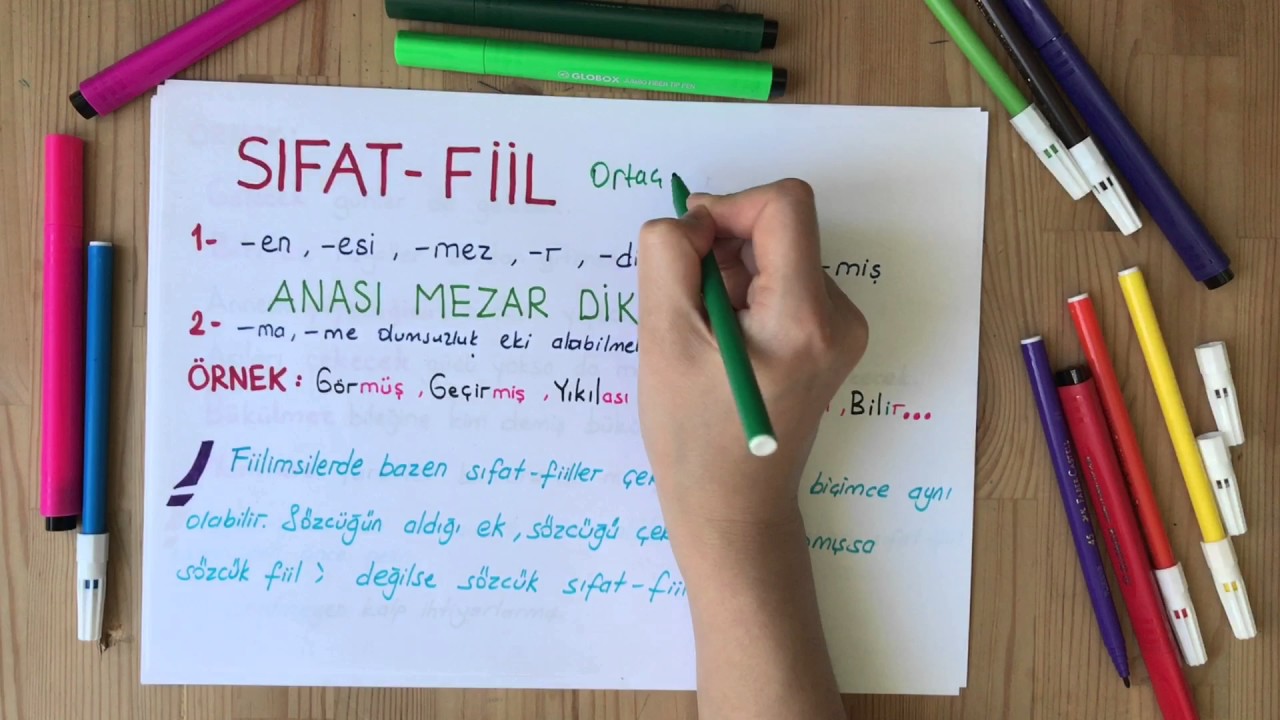 GLOBOX JUMBO FIBER TIP PEN
SIFAT-FİİL Ortaç
1- -en, -esi, -mez, -r, -di -miş
ANASI MEZAR DİK
2- -ma, -me olumsuzluk eki alabilmel
ÖRNEK: Görmüş, Geçirmiş, Yıkılası , Bilir...
! Fiilimsilerde bazen sıfat-fiiller çek biçimce aynı
olabilir. Sözcüğün aldığı ek, sözcüğü çek mışsa
sözcük fiil; değilse sözcük sıfat-fiil